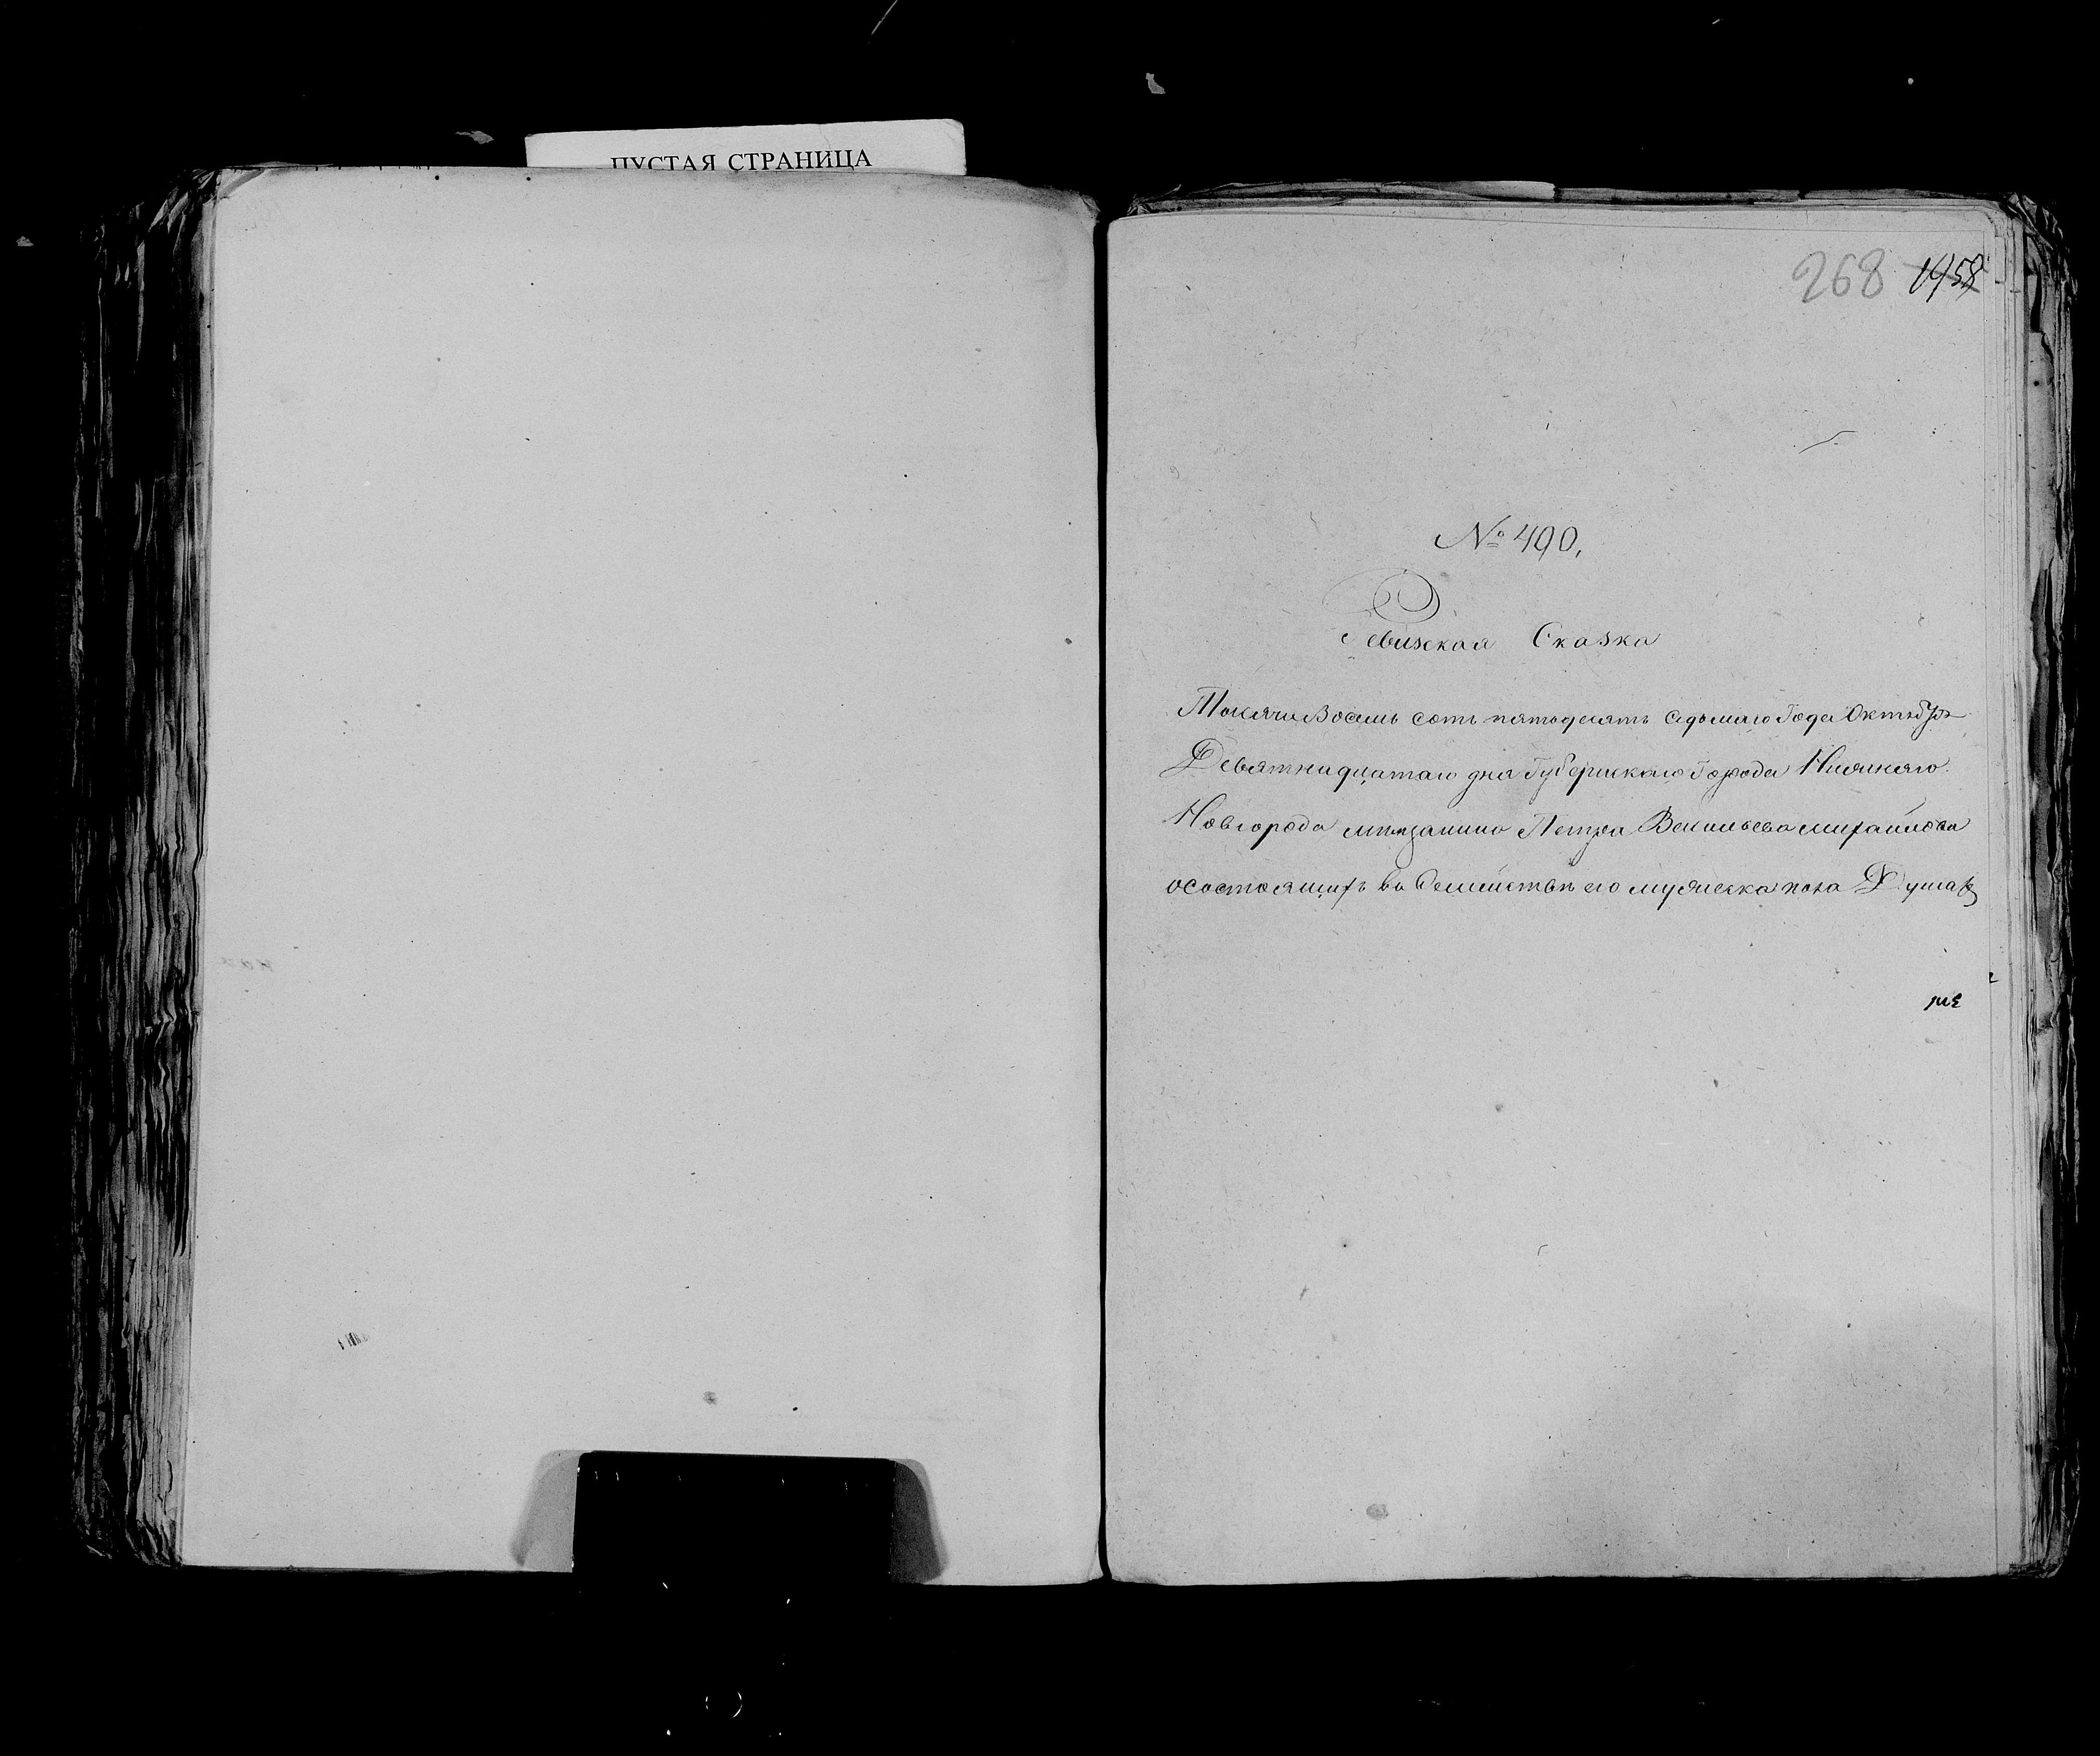 ПУСТАЯ СТРАНИЦА
268 1958
№ 490,
Ревизская Сказка
Тысяча Восемь сотъ пятьдесятъ седьмаго Года Октября
Девятнадцатаго дня Губернскаго Города Нижняго
Новгорода мѣщанина Петра Васильева Михайлова
о состоящихъ въ Семействѣ его мужеска пола Душахъ